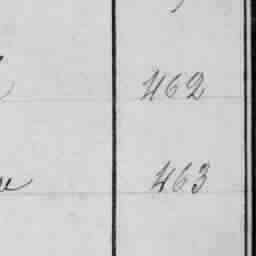 462
463